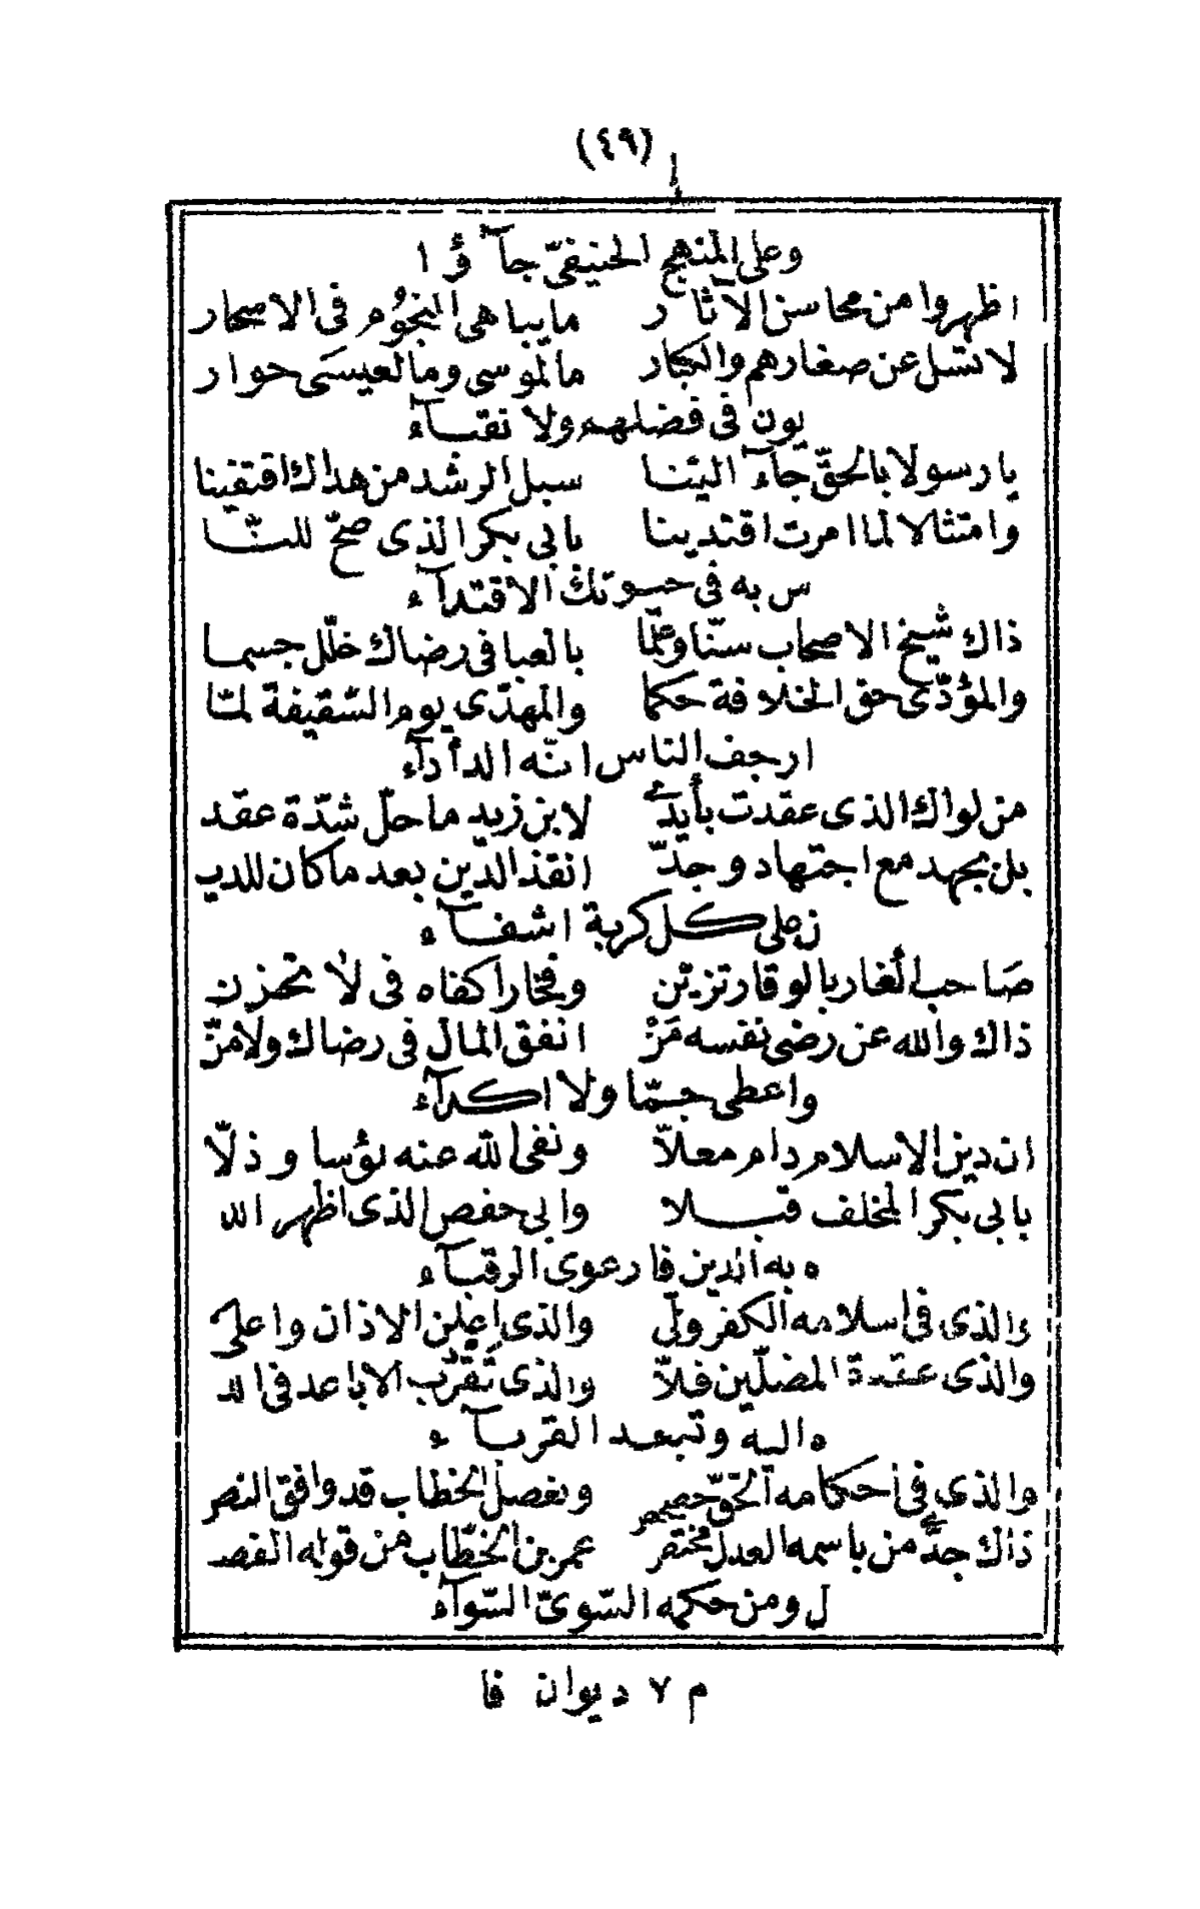 (٤٩)
وعلى المنهج الحنيفيّ جآ ؤ ا
اظهروا من محاسن الآثا ر مايباهى النجوم فى الاسحار
لا تسل عن صغارهم والكبار مالموسى ومالعيسى حوار
يون فى فضلهم ولا نقبآء
يا رسولا بالحقّ جآء الينا سبل الرشد من هداك اقتفينا
وامتثالا لما امرت اقتدينا بابى بكر الذى صحّ للنّا
س به فى حيوتك الاقتدآء
ذاك شيخ الاصحاب سنّا وعلما بالعبا فى رضاك خلّل جسما
والمؤدّى حق الخلافة حكما والمهدّى يوم السّقيفة لمّا
ارجف الناس انّه الدأدآء
من لواك الذى عقدت بأيد لابن زيد ماحلّ شدّة عقد
بل بجهد مع اجتهاد وجدّ انقذ الدّين بعد ما كان للدي
ن على كل كربة اشفآء
صاحب الغار بالوقار تزيّن وفخارا كفاه فى لا تحزن
ذاك والله عن رضى نفسه مَنْ انفق المال فى رضاك ولا منّ
واعطى جمّا ولا اكدآء
ان دين الاسلام دام معلاّ ونفى الله عنه بؤسا وذلّا
بابى بكر المخلف قبلا وابى حفص الذى اظهر الله
ه به الدين فارعوى الرقبآء
والذى فى اسلامه الكفر ولّى والذى اعلن الاذان واعلى
والذى عقدة المضلّين فلاّ والذى تقرّب الاباعد فى الله
ه اليه وتبعد القربآء
والذى فى احكامه الحقّ حصحص وبفصل الخطاب قد وافق النص
ذاك جدّى من باسمه العدل مختص عمر بن الخطّاب من قوله الفصـ
ل ومن حكمه السّوىّ السّوآء
م ٧ ديوان فا